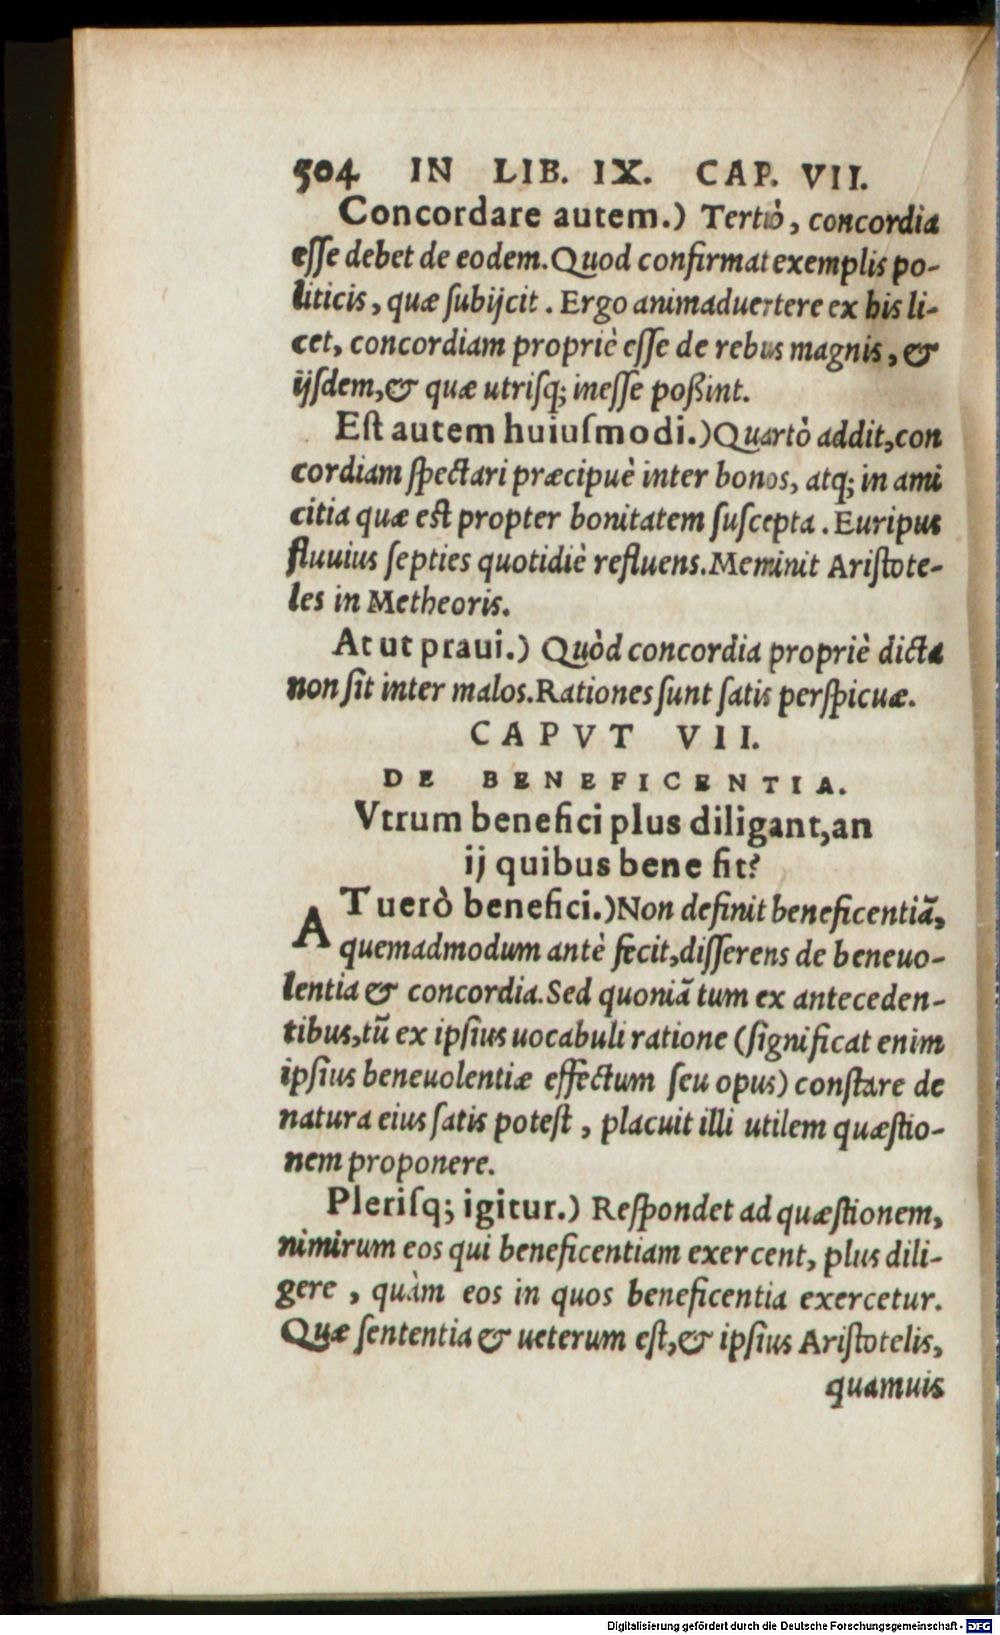 504 IN LIB. IX. CAP. VII.
Concordare autem.) Tertiò, concordia
esse debet de eodem. Quod confirmat exemplis po-
liticis, quæ subijcit. Ergo animaduertere ex his li-
cet, concordiam propriè esse de rebus magnis, &
ijsdem, & quæ utrisq; inesse poßint.
Est autem huiusmodi.) Quartò addit, con
cordiam spectari præcipuè inter bonos, atq; in ami
citia quæ est propter bonitatem suscepta. Euripus
fluuius septies quotidiè refluens. Meminit Aristote-
les in Metheoris.
At ut praui.) Quòd concordia propriè dicta
non sit inter malos. Rationes sunt satis perspicuæ.
CAPVT VII.
DE BENEFICENTIA.
Vtrum benefici plus diligant, an
ij quibus bene fit?
AT uerò benefici.) Non definit beneficentiã,
quemadmodum antè fecit, disserens de beneuo-
lentia & concordia. Sed quoniã tum ex anteceden-
tibus, tũ ex ipsius uocabuli ratione (significat enim
ipsius beneuolentiæ effectum seu opus) constare de
natura eius satis potest, placuit illi utilem quæstio-
nem proponere.
Plerisq; igitur.) Respondet ad quæstionem,
nimirum eos qui beneficentiam exercent, plus dili-
gere, quàm eos in quos beneficentia exercetur.
Quæ sententia & ueterum est, & ipsius Aristotelis,
quamuis
Digitalisierung gefördert durch die Deutsche Forschungsgemeinschaft - DFG